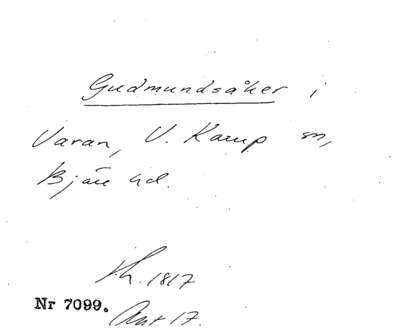 Gudmundsåker i
Varan, V. Karup sn,
Bjäre hd.
h. 1817
Nr 7099.
Akt 17.